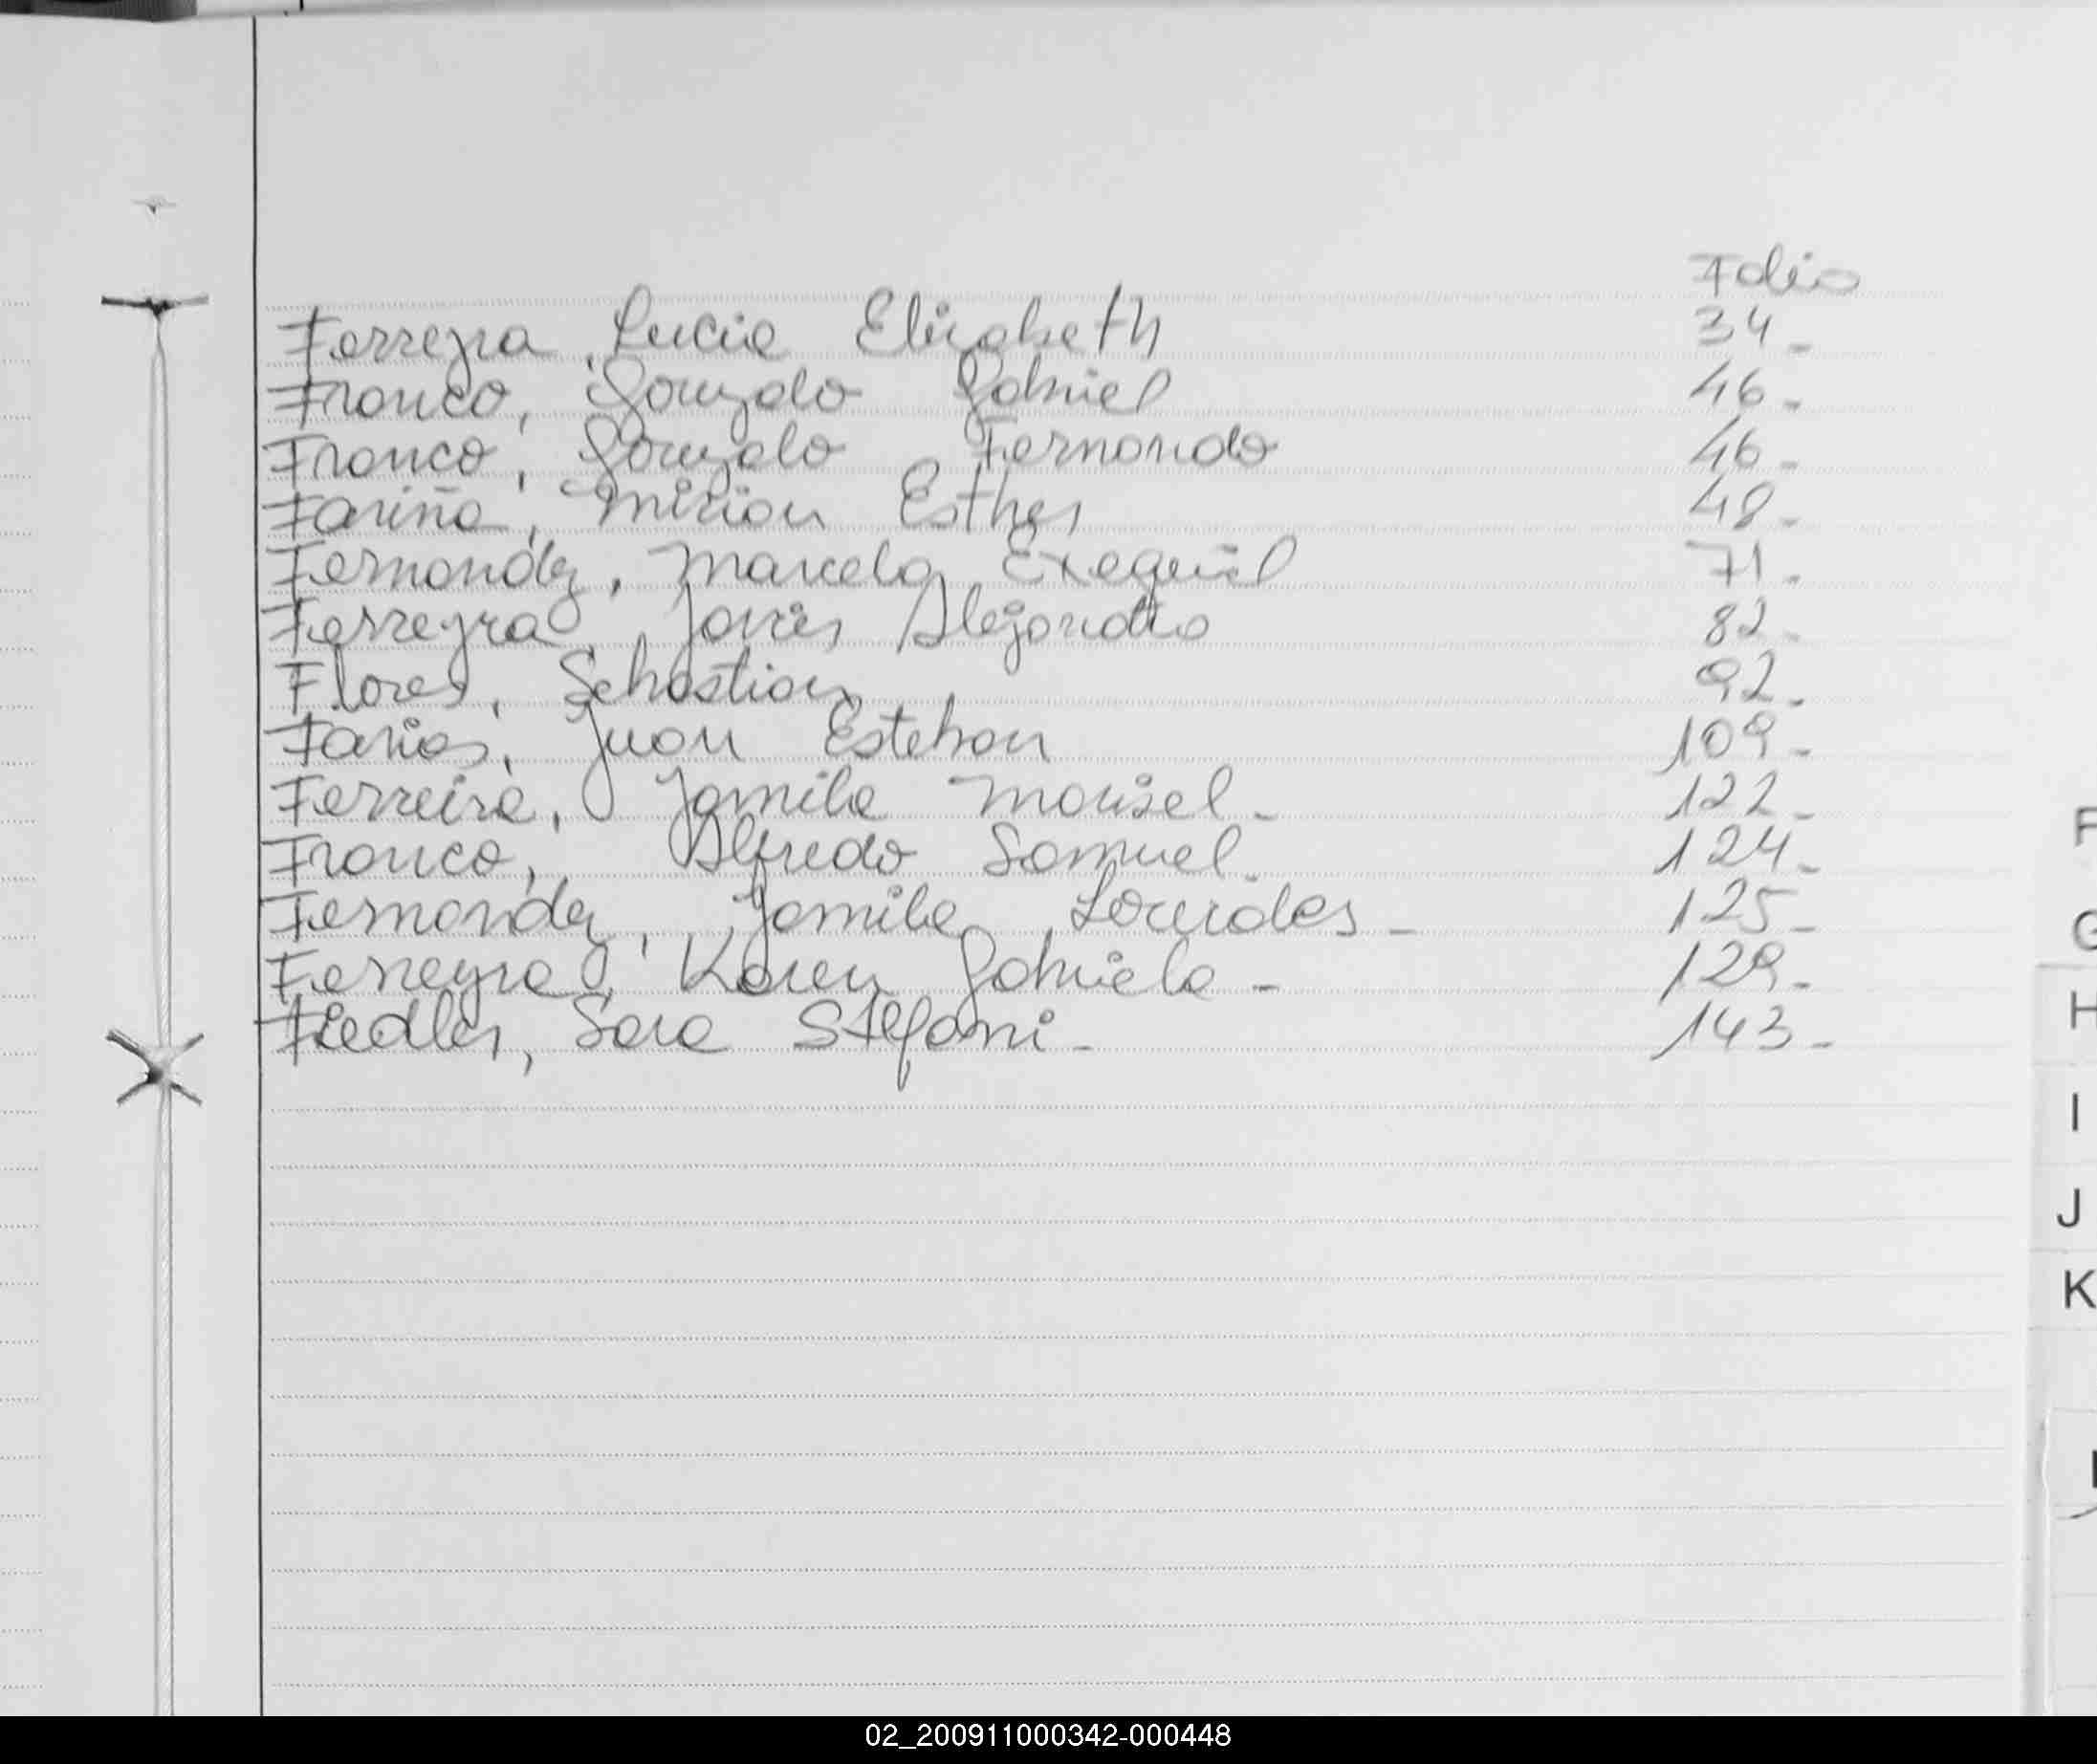 Folio
Ferreyra, Lucia Elizabeth 34-
Franco, Gonzalo Gabriel 46-
Franco, Gonzalo Fernando 46-
Fariña, Mirian Esther 48-
Fernandez, Marcelo Exequiel 71-
Ferreyra, Javier Alejandro 82-
Flores, Sebastian 92-
Farias, Juan Esteban 109-
Ferreira, Jamila Marisel- 122-
Franco, Alfredo Samuel- 124-
Fernandez, Yamila Lourdes- 125-
Ferreyra, Karen Gabriela- 129-
Fiedler, Sara Stefani- 143-
F
G
H
I
J
K
02_200911000342-000448